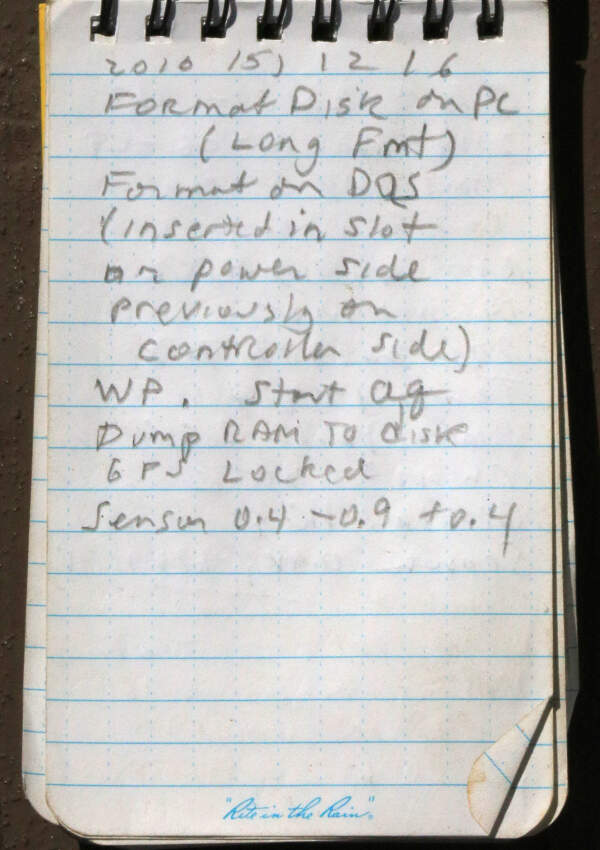 2010 151 12 16
Format Disk on PC
(Long Fmt)
Format on DQS
(inserted in slot
on power side
previously on
controller side)
WP. Start aq
Dump RAM To disk
GPS Locked
Sensor 0.4 -0.9 +0.4
"Rite in the Rain"®